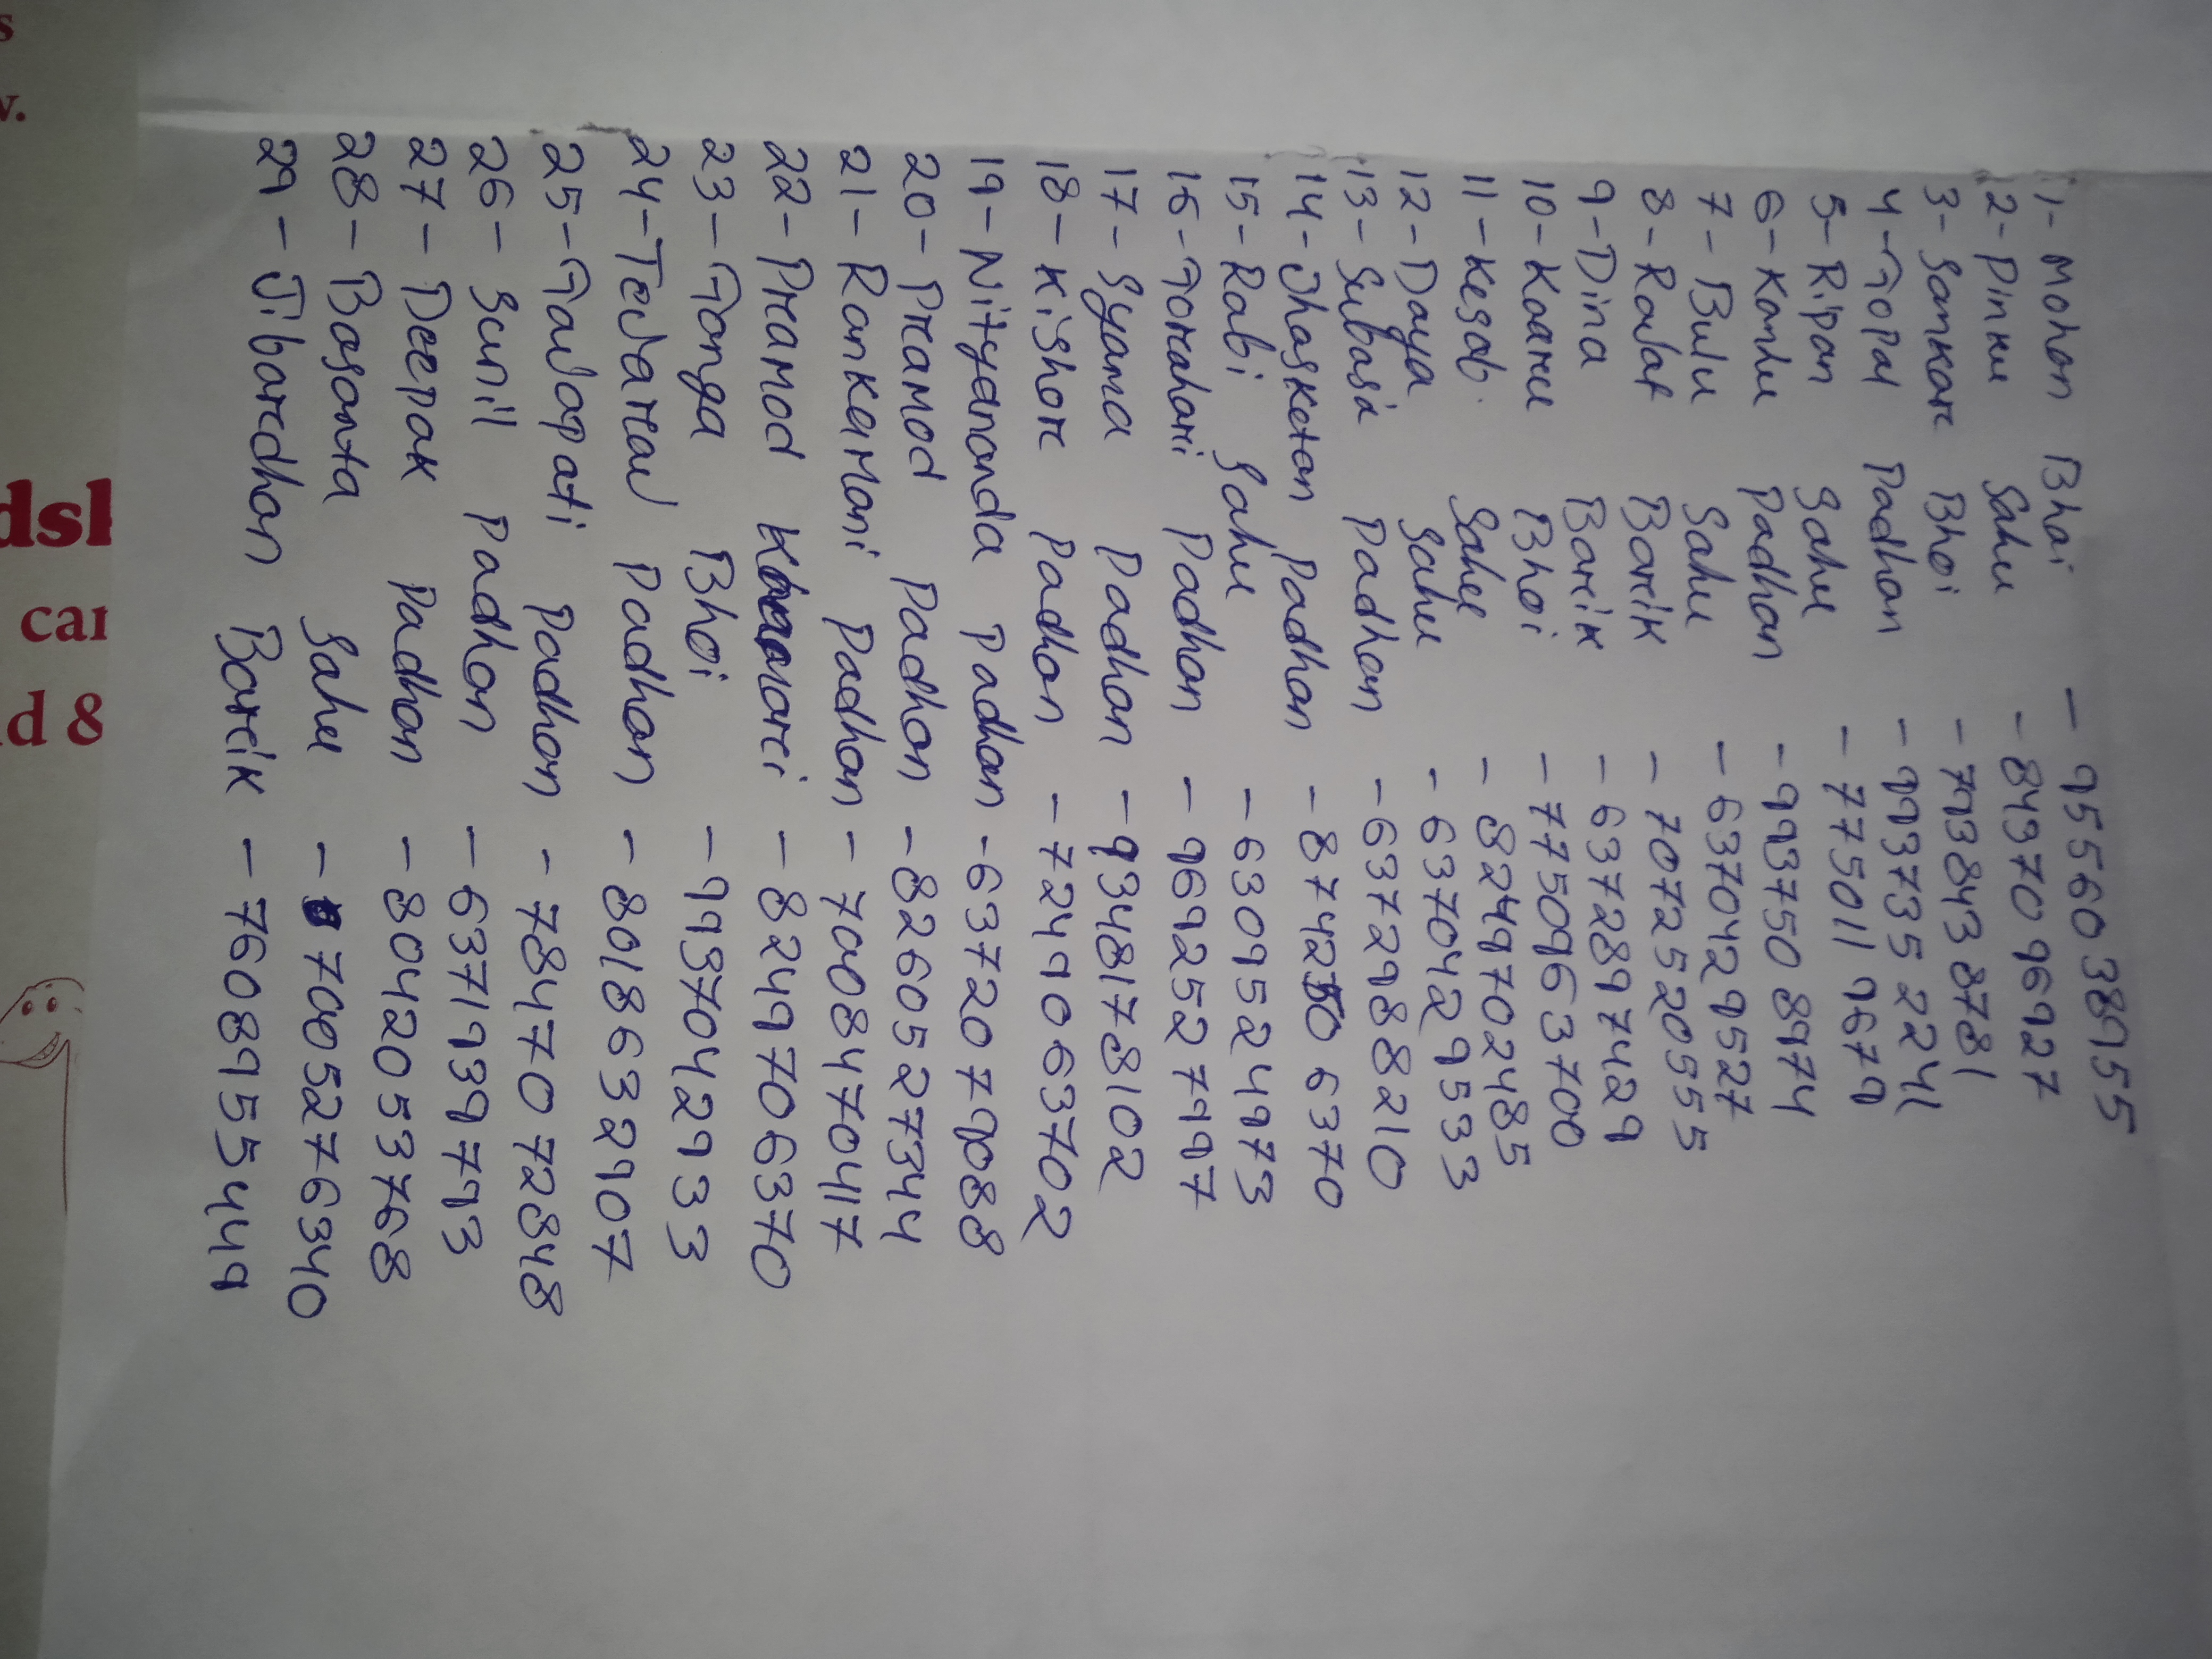 1- Mohan Bhoi - 9556038955
2- Pinku Sahu - 8437096927
3- Sankar Bhoi - 7938438781
4- Gopal Padhan - 9937352241
5- Ripan Sahu - 7750119679
6- Kanhu Padhan - 9937508974
7- Bulu Sahu - 6370429527
8- Raut Barik - 7072520555
9- Dina Barik - 6372897429
10- Koaru Bhoi - 7750963700
11- Kesab Sahu - 8249702485
12- Daya Sahu - 6370429533
13- Subasa Padhan - 6372988210
14- Jhasketan Padhan - 8742506370
15- Rabi Sahu - 6309524973
16- Gorahari Padhan - 9692527197
17- Syama Padhan - 9348178102
18- Kishor Padhan - 7249063702
19- Nityananda Padhan - 6372079088
20- Pramod Padhan - 8260527344
21- Rankamani Padhan - 7008470417
22- Pramod Kanari - 8249706370
23- Ganga Bhoi - 9937042933
24- TeJaraJ Padhan - 8018632907
25- GaJapati Padhan - 7847072848
26- Sunil Padhan - 6371939793
27- Deepak Padhan - 8042053768
28- Basanta Sahu - 7005276340
29- Jibardhan Barik - 7608955449
dsl
car
d &